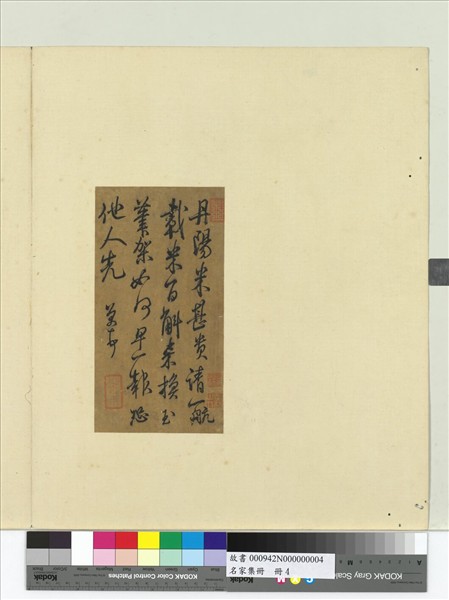 丹陽米甚貴請一航
載米百斛來換玉
筆架如何早一報恐
他人先 芾頓首
故書 000942N000000004
名家集冊 冊 4
Kodak
KODAK Color Control Patches
KODAK Gray Scale